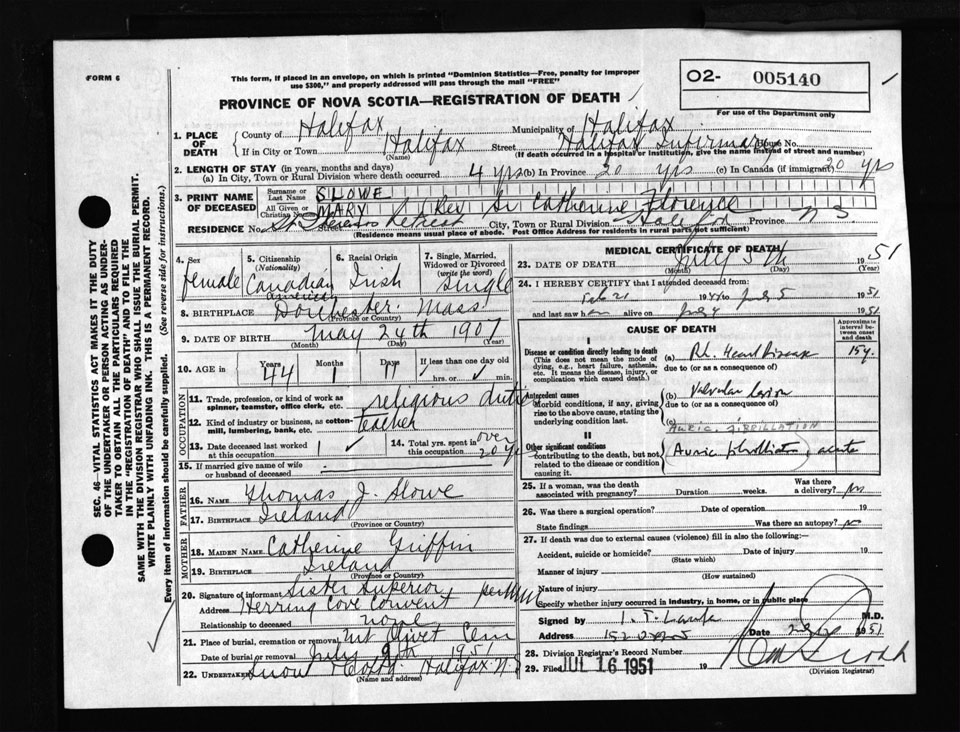 FORM 6
This form, if placed in an envelope, on which is printed "Dominion Statistics—Free, penalty for improper
use $300," and properly addressed will pass through the mail "FREE"
O2- 005140
For use of the Department only
PROVINCE OF NOVA SCOTIA—REGISTRATION OF DEATH
1. PLACE OF DEATH County of Halifax Municipality of Halifax
If in City or Town Halifax (Name) Street Halifax Infirmary House No.
(If death occurred in a hospital or institution, give the name instead of street and number)
2. LENGTH OF STAY (in years, months and days)
(a) In City, Town or Rural Division where death occurred 4 yrs (b) In Province 20 yrs (c) In Canada (if immigrant) 20 yrs
3. PRINT NAME OF DECEASED Surname or Last Name SLOWE
All Given or Christian Names MARY (Rev Sr Catherine Florence
RESIDENCE No. St Teresa's Retreat City, Town or Rural Division Halifax Province N S.
(Residence means usual place of abode. Post Office Address for residents in rural parts not sufficient)
4. Sex female
5. Citizenship (Nationality) Canadian american
6. Racial Origin Irish
7. Single, Married, Widowed or Divorced (write the word) Single
8. BIRTHPLACE Dorchester Mass (Province or Country)
9. DATE OF BIRTH May 24th 1907 (Month) (Day) (Year)
10. AGE in Years 44 Months 1 Days 11 If less than one day old hrs. or min.
OCCUPATION
11. Trade, profession, or kind of work as spinner, teamster, office clerk, etc. religious duties
12. Kind of industry or business, as cotton-mill, lumbering, bank, etc. teacher
13. Date deceased last worked at this occupation 1
14. Total yrs. spent in this occupation over 20 yrs
15. If married give name of wife or husband of deceased
FATHER
16. NAME Thomas J. Slowe
17. BIRTHPLACE Ireland (Province or Country)
MOTHER
18. MAIDEN NAME Catherine Griffin
19. BIRTHPLACE Ireland (Province or Country)
20. Signature of informant Sister Superior per
Address Herring Cove Convent
Relationship to deceased none
21. Place of burial, cremation or removal Mt Olivet Cem
Date of burial or removal July 9th 1951
22. UNDERTAKER Snow & Co Ltd Halifax N.S
(Name and address)
MEDICAL CERTIFICATE OF DEATH
23. DATE OF DEATH July 5th 1951 (Month) (Day) (Year)
24. I HEREBY CERTIFY that I attended deceased from
Feb 21 19 to July 5 1951
and last saw h alive on July 4 1951
CAUSE OF DEATH
Approximate interval between onset and death
I
Disease or condition directly leading to death
(This does not mean the mode of dying, e.g., heart failure, asthenia, etc. It means the disease, injury, or complication which caused death.)
(a) Rh. Heart Disease 15 y.
due to (or as a consequence of)
Antecedent causes
Morbid conditions, if any, giving rise to the above cause, stating the underlying condition last.
(b) Valvular lesion
due to (or as a consequence of)
(c) AURIC. FIBRILLATION
II
Other significant conditions
contributing to the death, but not related to the disease or condition causing it.
Auric fibrillation, acute
25. If a woman, was the death associated with pregnancy? Duration weeks. Was there a delivery? no
26. Was there a surgical operation? Date of operation 19
State findings Was there an autopsy? no
27. If death was due to external causes (violence) fill in also the following:
Accident, suicide or homicide? (State which) Date of injury 19
Manner of injury (How sustained)
Nature of injury
Specify whether injury occurred in industry, in home, or in public place
Signed by M.D.
Address Date 1951
28. Division Registrar's Record Number
29. Filed JUL 16 1951 19
(Division Registrar)
SEC. 46—VITAL STATISTICS ACT MAKES IT THE DUTY
OF THE UNDERTAKER OR PERSON ACTING AS UNDER-
TAKER TO OBTAIN ALL THE PARTICULARS REQUIRED
IN THE "REGISTRATION OF DEATH" AND TO FILE THE
SAME WITH THE DIVISION REGISTRAR WHO SHALL ISSUE THE BURIAL PERMIT.
WRITE PLAINLY WITH UNFADING INK. THIS IS A PERMANENT RECORD.
Every item of information should be carefully supplied. (See reverse side for instructions.)